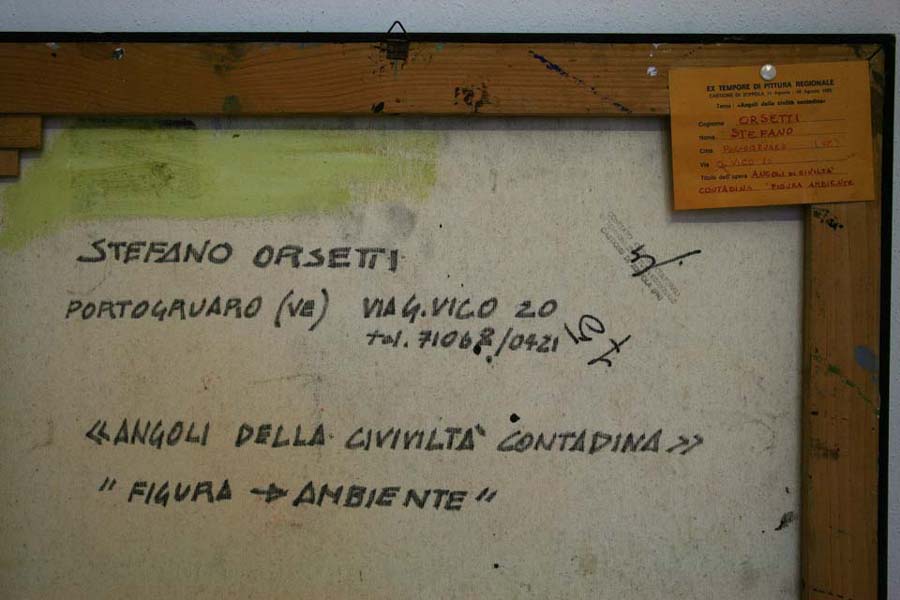 EX TEMPORE DI PITTURA REGIONALE
CASTIONE DI ZOPPOLA Agosto Agosto
Tema: «Angoli della civiltà contadina»
Cognome ORSETTI
Nome STEFANO
Città PORTOGRUARO (VE)
Via G. VICO 20
Titolo dell'opera ANGOLI DI CIVILTA'
CONTADINA "FIGURA AMBIENTE
STEFANO ORSETTI
PORTOGRUARO (VE) VIA G. VICO 20
tel. 71068/0421
«ANGOLI DELLA CIVIVILTA' CONTADINA»
" FIGURA → AMBIENTE "